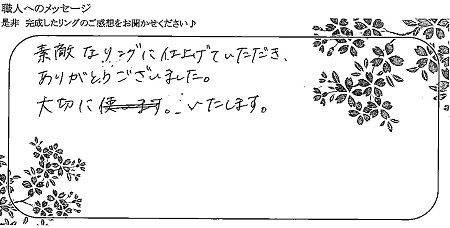 職人へのメッセージ
是非 完成したリングのご感想をお聞かせください♪
素敵なリングに仕上げていただき、
ありがとうございました。
大切に使います。いたします。